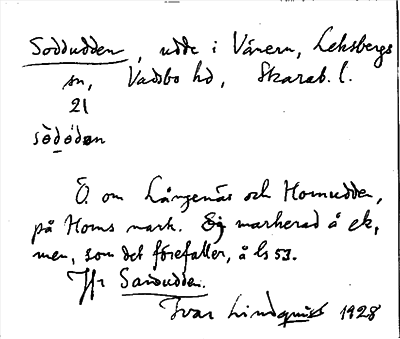 Soddudden, udde i Vänern, Leksbergs
sn, Vadsbo hd, Skarab. l.
21
södödən
Ö. om Långenäs och Homudden,
på Homs mark. Ej markerad å ek,
men, som det förefaller, å ls 53.
Jfr Sandudden.
Ivar Lindquist 1928